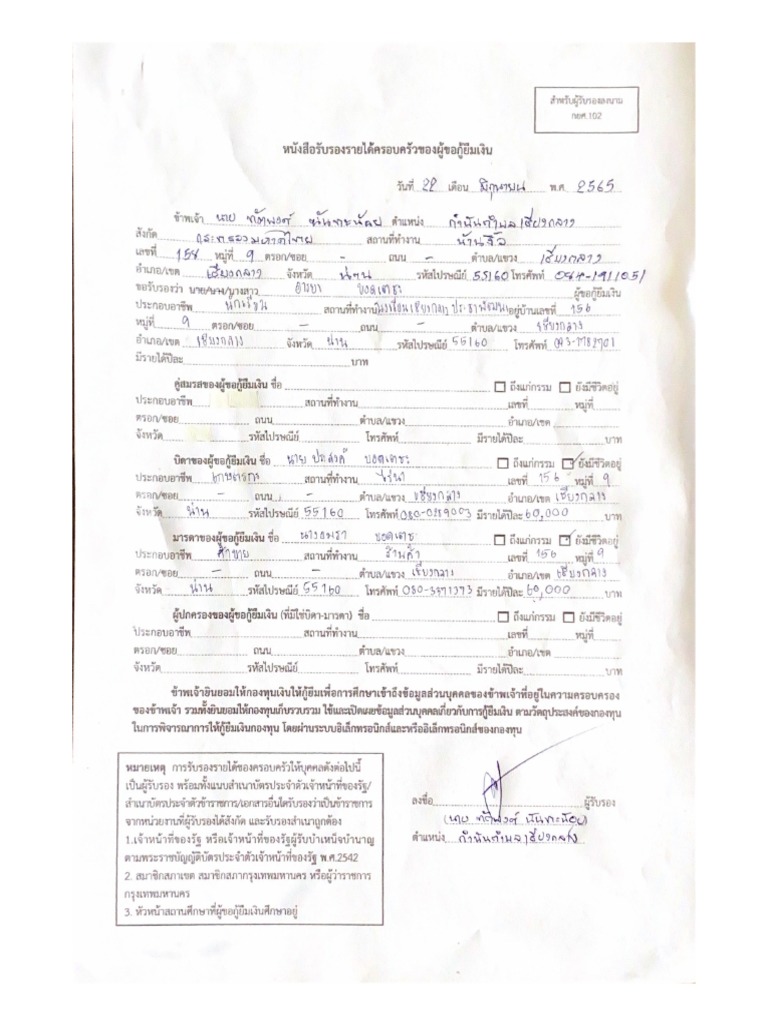 สำหรับผู้รับรองลงนาม
กยศ.102
หนังสือรับรองรายได้ครอบครัวของผู้ขอกู้ยืมเงิน
วันที่ 22 เดือน มิถุนายน พ.ศ. 2565
ข้าพเจ้า นาย ทัติพงศ์ นันทะน้อย ตำแหน่ง กำนันตำบลเชียงกลาง
สังกัด กระทรวงมหาดไทย สถานที่ทำงาน
เลขที่ 154 หมู่ที่ 9 ตรอก/ซอย - ถนน - ตำบล/แขวง เชียงกลาง
อำเภอ/เขต เชียงกลาง จังหวัด น่าน รหัสไปรษณีย์ 55160 โทรศัพท์ 084-1911051
ขอรับรองว่า นาย/นาง/นางสาว ยอดเตชะ ผู้ขอกู้ยืมเงิน
ประกอบอาชีพ นักเรียน สถานที่ทำงาน โรงเรียนเชียงกลาง ประชาพัฒนา อยู่บ้านเลขที่ 156
หมู่ที่ 9 ตรอก/ซอย - ถนน - ตำบล/แขวง เชียงกลาง
อำเภอ/เขต เชียงกลาง จังหวัด น่าน รหัสไปรษณีย์ 55160 โทรศัพท์
มีรายได้ปีละ บาท
คู่สมรสของผู้ขอกู้ยืมเงิน ชื่อ ☐ ถึงแก่กรรม ☐ ยังมีชีวิตอยู่
ประกอบอาชีพ สถานที่ทำงาน เลขที่ หมู่ที่
ตรอก/ซอย ถนน ตำบล/แขวง อำเภอ/เขต
จังหวัด รหัสไปรษณีย์ โทรศัพท์ มีรายได้ปีละ บาท
บิดาของผู้ขอกู้ยืมเงิน ชื่อ นาย ประสงค์ ยอดเตชะ ☐ ถึงแก่กรรม ☑ ยังมีชีวิตอยู่
ประกอบอาชีพ เกษตรกร สถานที่ทำงาน ไร่นา เลขที่ 156 หมู่ที่ 9
ตรอก/ซอย - ถนน - ตำบล/แขวง เชียงกลาง อำเภอ/เขต เชียงกลาง
จังหวัด น่าน รหัสไปรษณีย์ 55160 โทรศัพท์ มีรายได้ปีละ 60,000 บาท
มารดาของผู้ขอกู้ยืมเงิน ชื่อ ยอดเตชะ ☐ ถึงแก่กรรม ☑ ยังมีชีวิตอยู่
ประกอบอาชีพ ค้าขาย สถานที่ทำงาน ร้านค้า เลขที่ 156 หมู่ที่ 9
ตรอก/ซอย - ถนน - ตำบล/แขวง เชียงกลาง อำเภอ/เขต เชียงกลาง
จังหวัด น่าน รหัสไปรษณีย์ 55160 โทรศัพท์ มีรายได้ปีละ 60,000 บาท
ผู้ปกครองของผู้ขอกู้ยืมเงิน (ที่มิใช่บิดา-มารดา) ชื่อ ☐ ถึงแก่กรรม ☐ ยังมีชีวิตอยู่
ประกอบอาชีพ สถานที่ทำงาน เลขที่ หมู่ที่
ตรอก/ซอย ถนน ตำบล/แขวง อำเภอ/เขต
จังหวัด รหัสไปรษณีย์ โทรศัพท์ มีรายได้ปีละ บาท
ข้าพเจ้ายินยอมให้กองทุนเงินให้กู้ยืมเพื่อการศึกษาเข้าถึงข้อมูลส่วนบุคคลของข้าพเจ้าที่อยู่ในความครอบครอง
ของข้าพเจ้า รวมทั้งยินยอมให้กองทุนเก็บรวบรวม ใช้และเปิดเผยข้อมูลส่วนบุคคลเกี่ยวกับการกู้ยืมเงิน ตามวัตถุประสงค์ของกองทุน
ในการพิจารณาการให้กู้ยืมเงินกองทุน โดยผ่านระบบอิเล็กทรอนิกส์และหรืออิเล็กทรอนิกส์ของกองทุน
หมายเหตุ การรับรองรายได้ของครอบครัวให้บุคคลดังต่อไปนี้
เป็นผู้รับรอง พร้อมทั้งแนบสำเนาบัตรประจำตัวเจ้าหน้าที่ของรัฐ/
สำเนาบัตรประจำตัวข้าราชการ/เอกสารอื่นใดรับรองว่าเป็นข้าราชการ
จากหน่วยงานที่ผู้รับรองได้สังกัด และรับรองสำเนาถูกต้อง
1.เจ้าหน้าที่ของรัฐ หรือเจ้าหน้าที่ของรัฐผู้รับบำเหน็จบำนาญ
ตามพระราชบัญญัติบัตรประจำตัวเจ้าหน้าที่ของรัฐ พ.ศ.2542
2. สมาชิกสภาเขต สมาชิกสภากรุงเทพมหานคร หรือผู้ว่าราชการ
กรุงเทพมหานคร
3. หัวหน้าสถานศึกษาที่ผู้ขอกู้ยืมเงินศึกษาอยู่
ลงชื่อ ผู้รับรอง
(นาย ทัติพงศ์ นันทะน้อย)
ตำแหน่ง กำนันตำบลเชียงกลาง